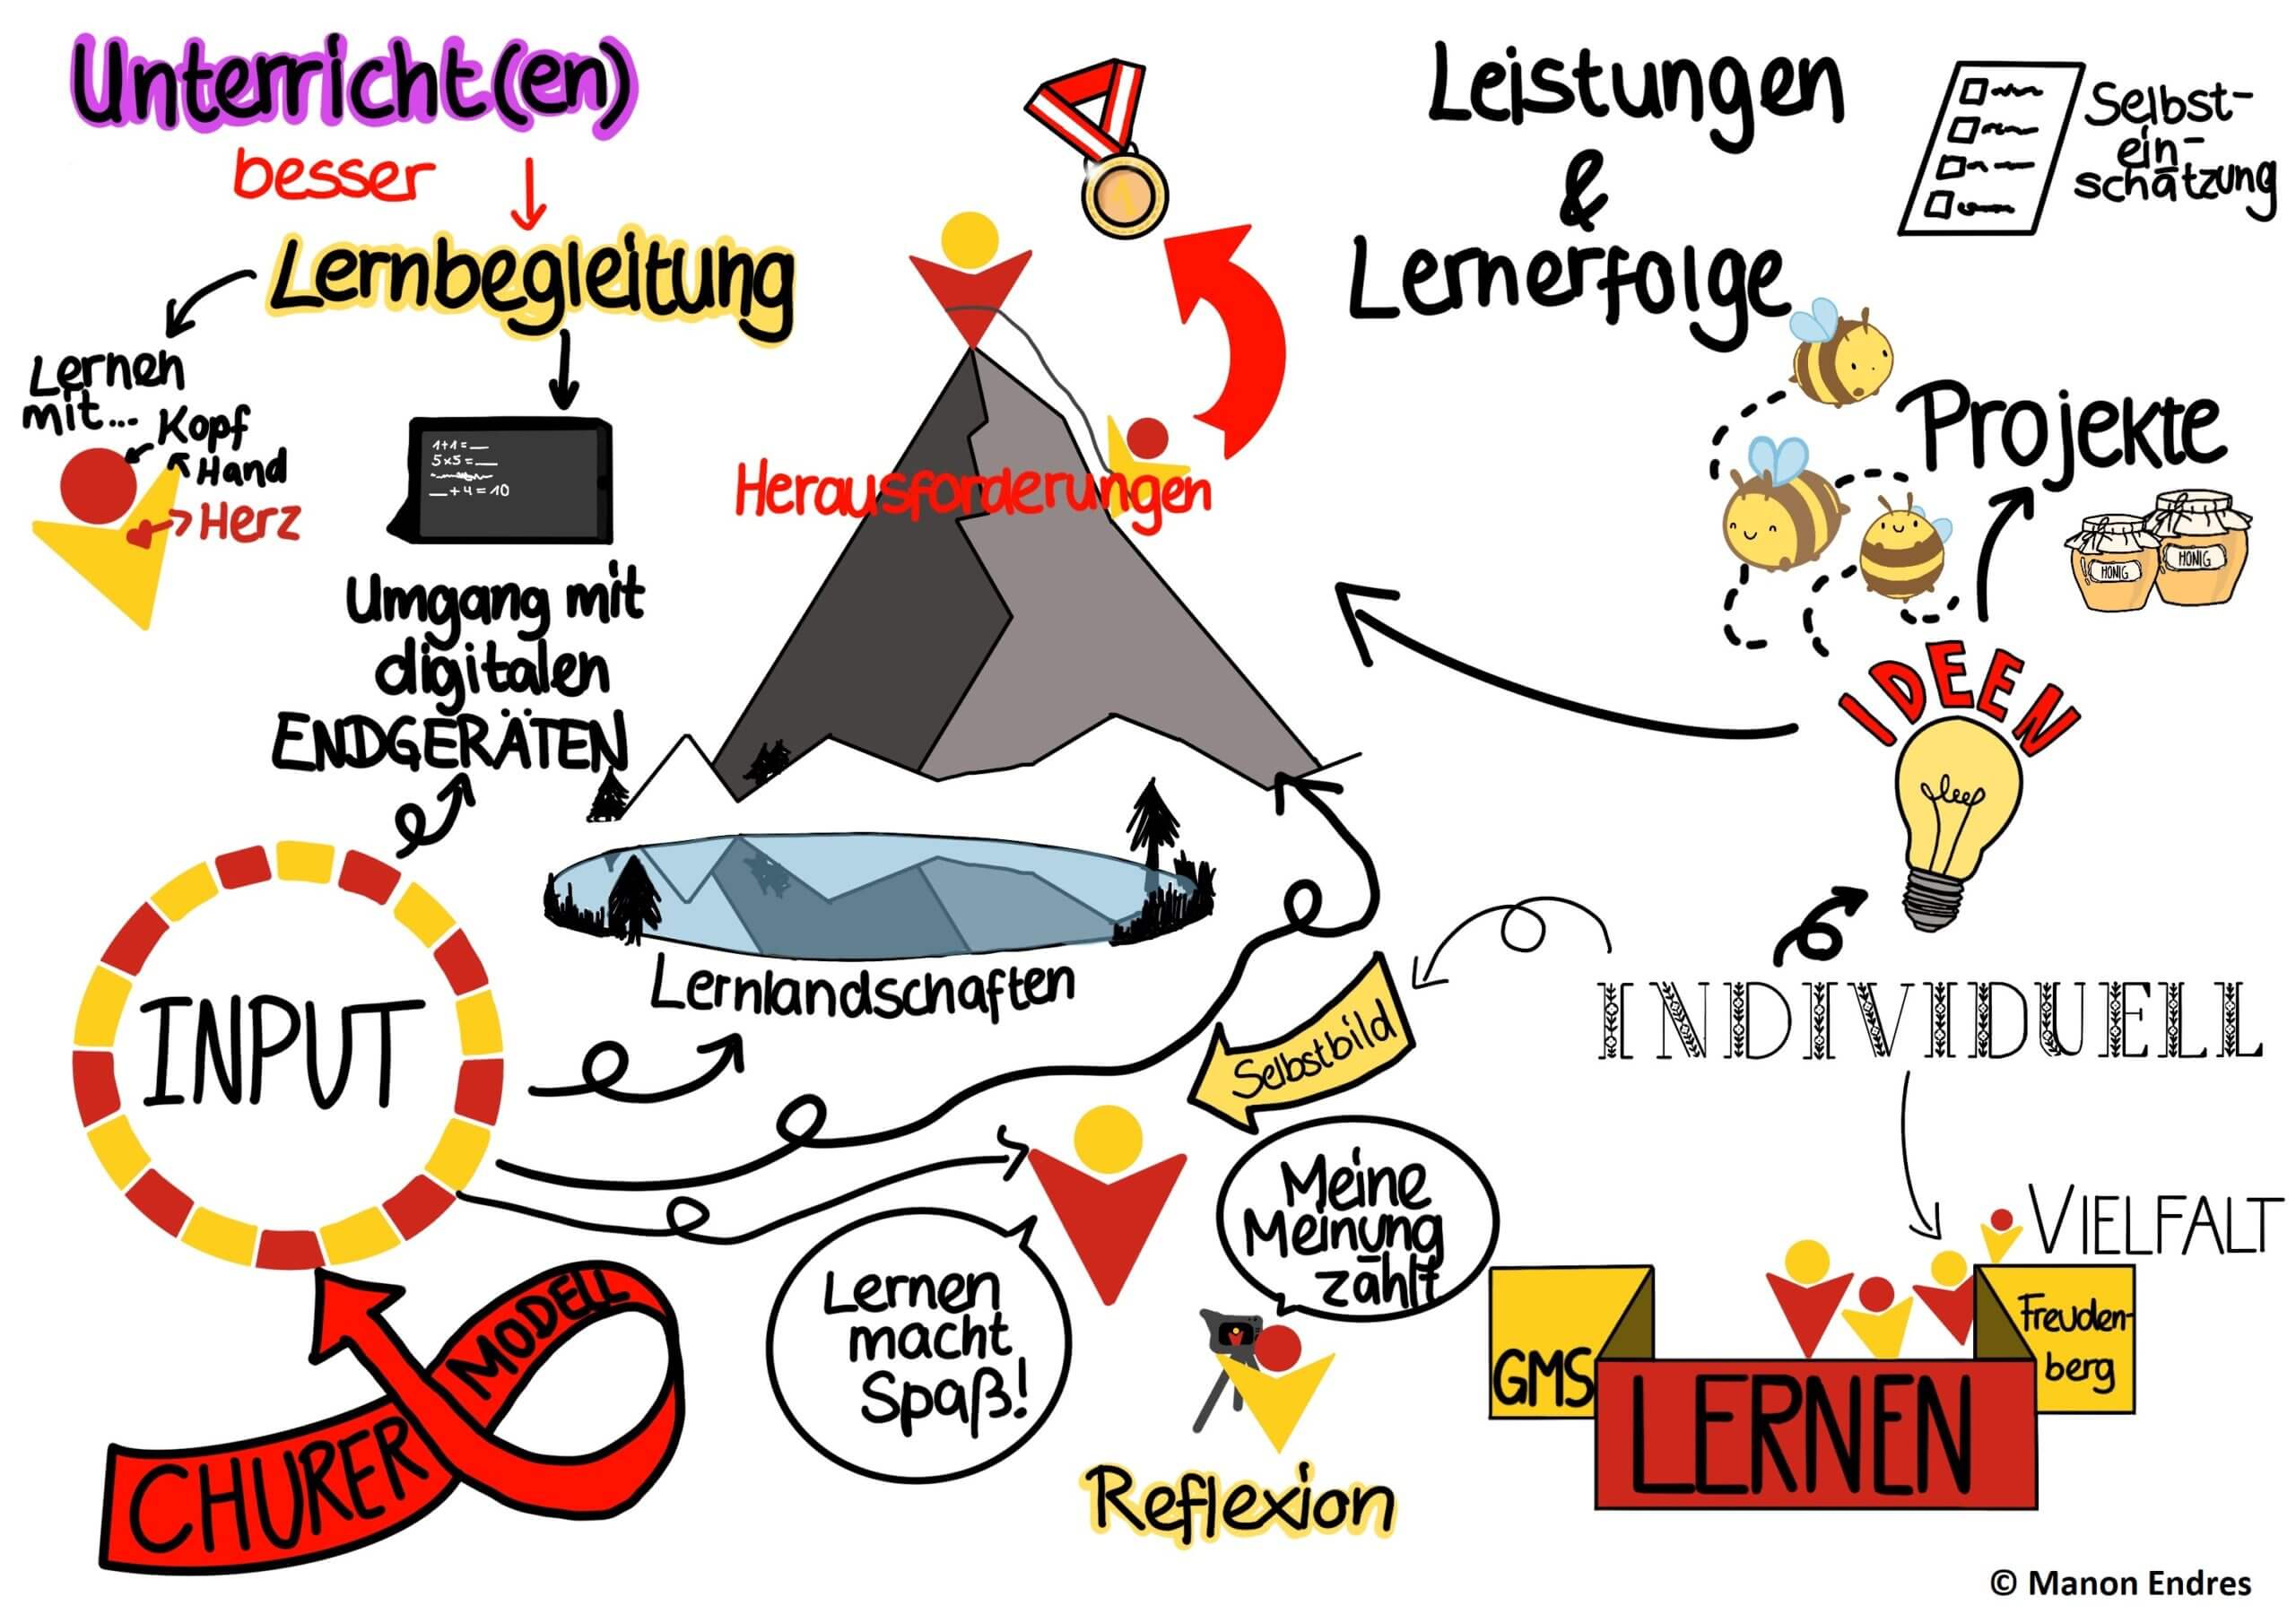 Unterricht(en)
besser
Lernbegleitung
Lernen
mit...
Kopf
Hand
Herz
1+1=__
5x5=__
__+4=10
Umgang mit
digitalen
ENDGERÄTEN
Herausforderungen
Leistungen
&
Lernerfolge
Selbst-
ein-
schätzung
Projekte
HONIG
HONIG
IDEEN
INPUT
Lernlandschaften
Selbstbild
INDIVIDUELL
Meine
Meinung
zählt
Lernen
macht
Spaß!
Reflexion
CHURER
MODELL
VIELFALT
GMS
Freuden-
berg
LERNEN
© Manon Endres